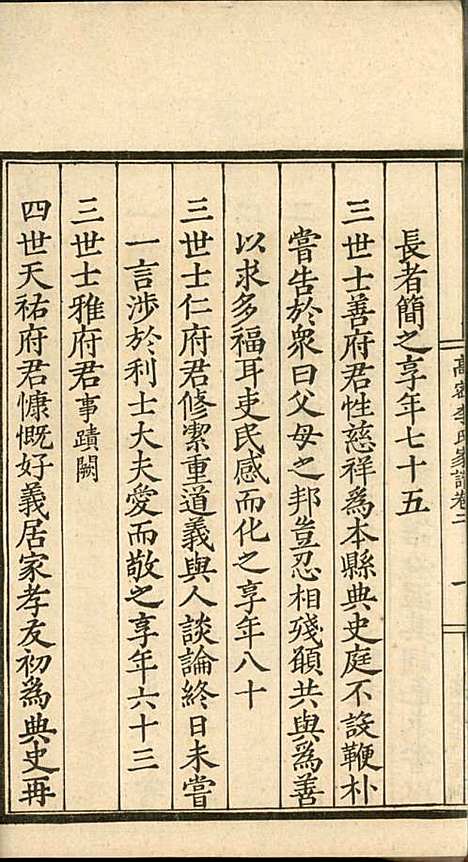 高密李氏家譜卷二
長者簡之享年七十五
三世士善府君性慈祥為本縣典史庭不設鞭朴
嘗告於衆曰父母之邦豈忍相殘願共與為善
以求多福耳吏民感而化之享年八十
三世士仁府君修潔重道義與人談論終日未嘗
一言涉於利士大夫愛而敬之享年六十三
三世士雅府君事蹟闕
四世天祐府君慷慨好義居家孝友初為典史再